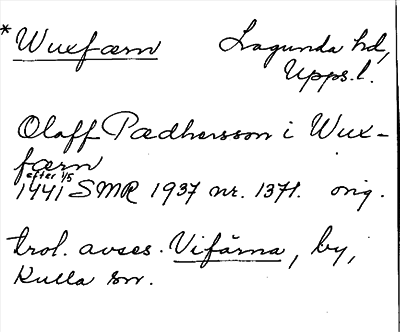 * Wuxfærn Lagunda hd,
Upps. l.
Olaff Pædhersson i Wux-
færn
efter 1/5
1441 SMR 1937 nr. 1371. orig.
trol. avses. Vifärna, by,
Kulla sn.